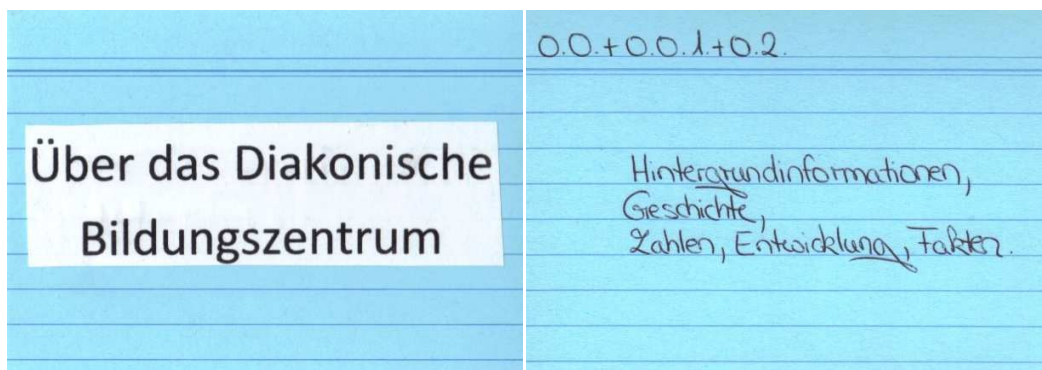 Über das Diakonische
Bildungszentrum
0.0.+0.0.1.+0.2.
Hintergrundinformationen,
Geschichte,
Zahlen, Entwicklung, Fakten.